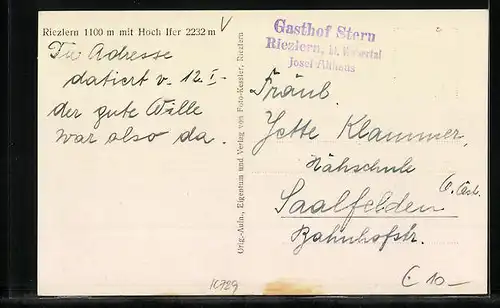 Riezlern 1100 m mit Hoch Ifer 2232 m
V
Die Adresse
datiert v. 12. I.
der gute Wille
war also da.
Orig.-Aufn., Eigentum und Verlag von Foto-Kessler, Riezlern
Gasthof Stern
Riezlern, kl. Walsertal
Josef
Fräul.
Jette Klammer,
Nähschule
Saalfelden
Bahnhofstr.
10729
€ 10-